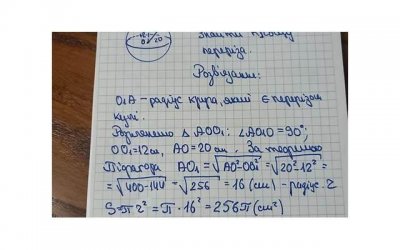 Знайти площу
перерізу.
Розв'язання:
O₁A – радіус круга, який є перерізом
кулі.
Розглянемо △ AOO₁: ∠AO₁O = 90°;
OO₁ = 12 см, AO = 20 см. За теоремою
Піфагора AO₁ = √AO²-OO₁² = √20²-12² =
= √400-144 = √256 = 16 (см) – радіус. r
S = π r² = π · 16² = 256π (см²)